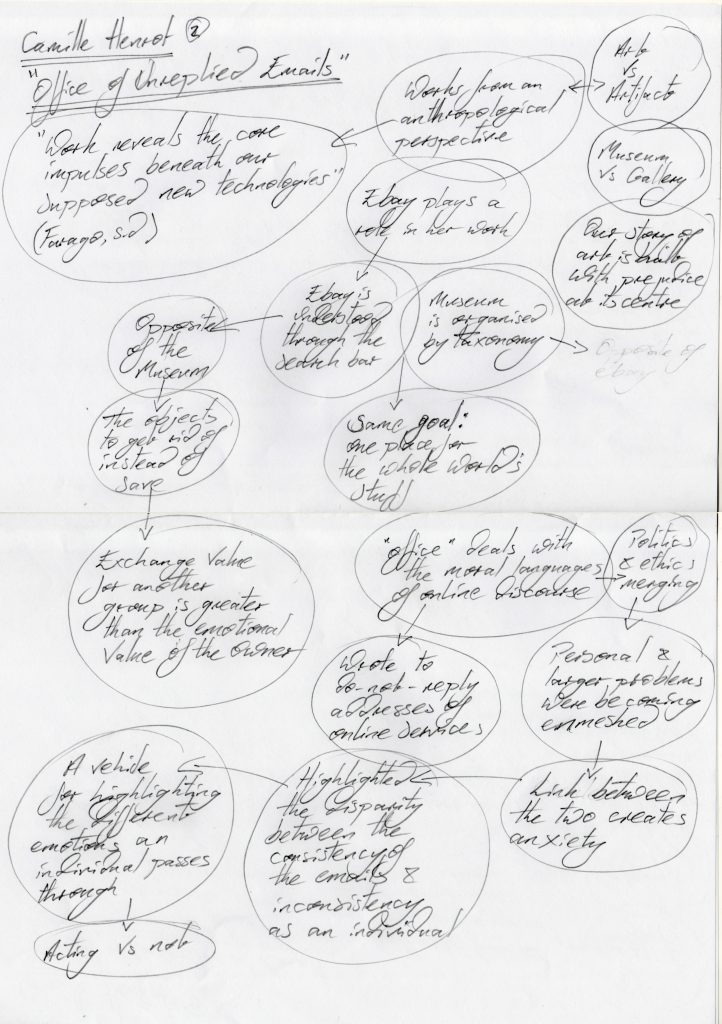 Camille Henrot ②
"Office of Unreplied Emails"
"Work reveals the core
impulses beneath our
supposed new technologies"
(Farago, s.d)
Works from an
anthropological
perspective
Art
vs
Artifact
Museum
vs Gallery
Our story of
art is built
with prejudice
at its centre
Ebay plays a
role in her work
Ebay is
understood
through the
search bar
Museum
is organised
by taxonomy
Opposite of
ebay
Opposite
of the
Museum
The objects
to get rid of
instead of
save
Same goal:
one place for
the whole world's
stuff
Exchange value
for another
group is greater
than the emotional
value of the owner
"office" deals with
the moral languages
of online discourse
Politics
& ethics
merging
Wrote to
do-not-reply
addresses of
online services
Personal &
larger problems
were becoming
enmeshed
Link between
the two creates
anxiety
Highlighted
the disparity
between the
consistency of
the emails &
inconsistency
as an individual
A vehicle
for highlighting
the different
emotions an
individual passes
through
Acting vs not